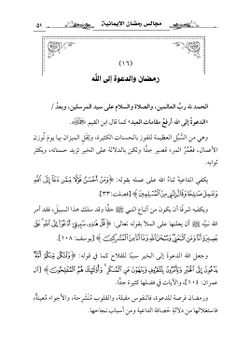 مجالس رمضان الإيمانية
٥١
(١٦)
رمضان والدعوة إلى الله
الحمد لله ربِّ العالمين، والصلاة والسلام على سيد المرسلين، وبعدُ /
«الدعوةُ إلى الله أرفعُ مقامات العبد» كما قال ابن القيم
وهي من السُّبل العظيمة للفوز بالحسنات الكثيرة، وثِقَل الميزان بها يومَ تُوزن
الأعمال، فعُمْرُ المرء قصير جدًّا ولكن بالدلالة على الخير تزيد حسناته، ويكثر
ثوابه.
يكفي الداعيةَ ثناءُ الله على عمله بقوله: ﴿وَمَنْ أَحْسَنُ قَوْلًا مِّمَّن دَعَآ إِلَى ٱللَّهِ
وَعَمِلَ صَٰلِحًا وَقَالَ إِنَّنِى مِنَ ٱلْمُسْلِمِينَ﴾ [فصلت: ٣٣].
ويكفيه شرفًا أن يكون من أتباع النبي ﷺ حقًّا وقد سلك هذا السبيل، فقد أمر
الله نبيَّه ﷺ أن يعلنها على الملأ بقوله تعالى: ﴿قُلْ هَٰذِهِۦ سَبِيلِىٓ أَدْعُوٓا۟ إِلَى ٱللَّهِ عَلَىٰ
بَصِيرَةٍ أَنَا۠ وَمَنِ ٱتَّبَعَنِى وَسُبْحَٰنَ ٱللَّهِ وَمَآ أَنَا۠ مِنَ ٱلْمُشْرِكِينَ﴾ [يوسف: ١٠٨].
وجعل الله الدعوة إلى الخير سببًا للفلاح كما في قوله: ﴿وَلْتَكُن مِّنكُمْ أُمَّةٌ
يَدْعُونَ إِلَى ٱلْخَيْرِ وَيَأْمُرُونَ بِٱلْمَعْرُوفِ وَيَنْهَوْنَ عَنِ ٱلْمُنكَرِ وَأُو۟لَٰٓئِكَ هُمُ ٱلْمُفْلِحُونَ﴾ [آل
عمران: ١٠٤]، والآيات في فضلها كثيرة جدًّا.
ورمضان فرصة للدعوة، فالنفوس مقبلة، والقلوب مُنشرحة، والأجواء مُعينةٌ،
فاستغلالها من دلائل حصافة الداعية ومن أسباب نجاحها.